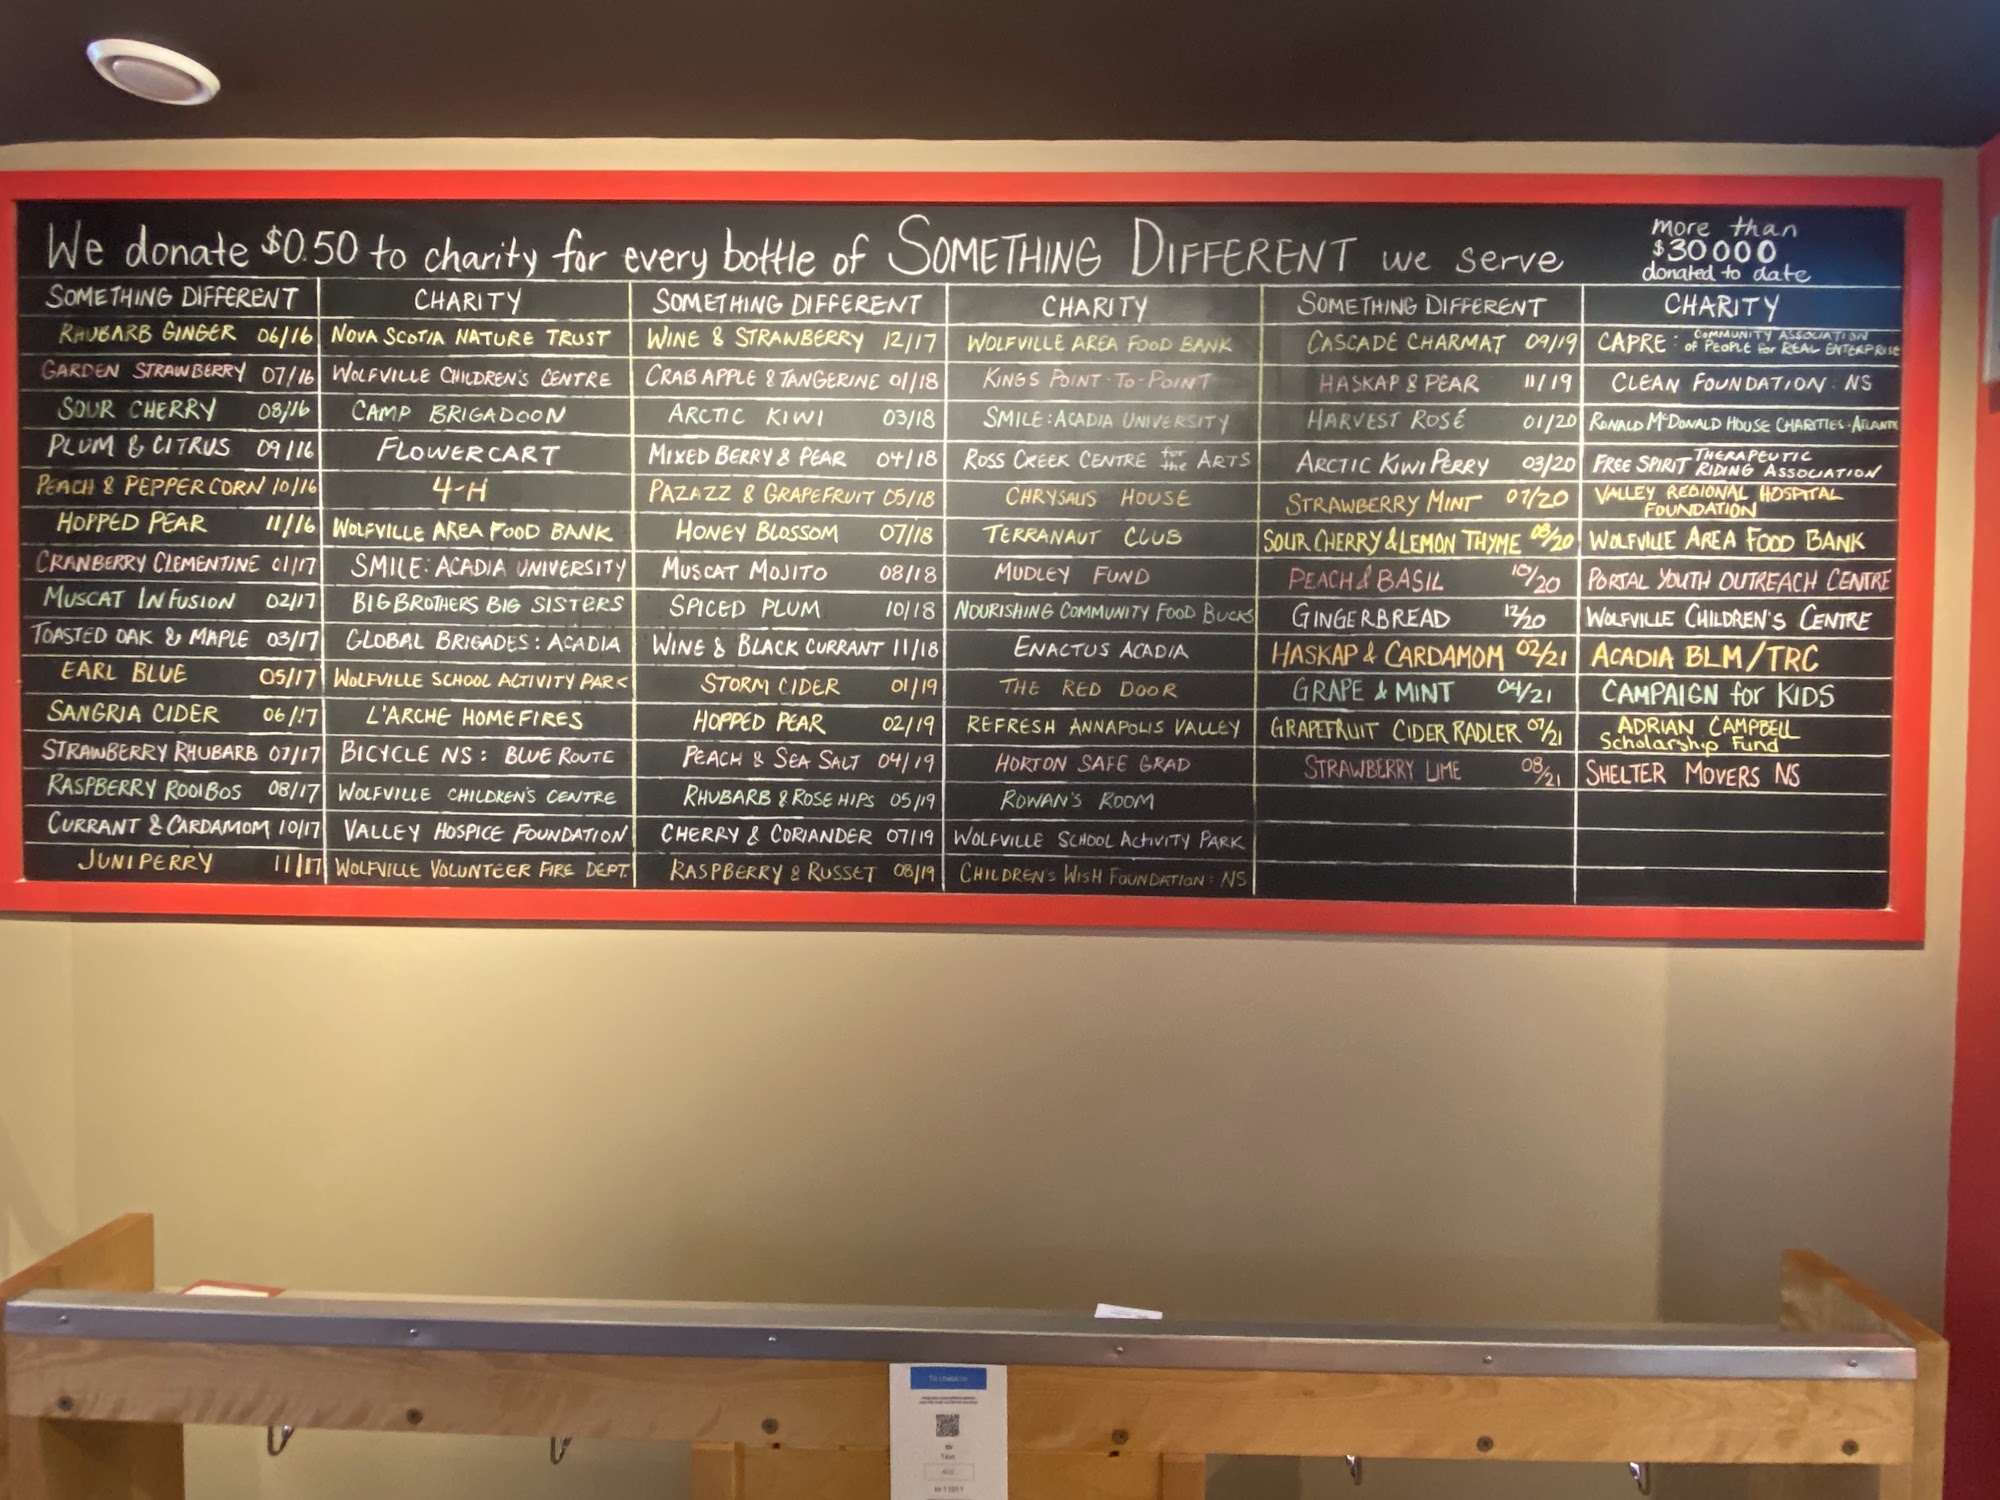 We donate $0.50 to charity for every bottle of SOMETHING DIFFERENT we serve
more than
$30000
donated to date
SOMETHING DIFFERENT CHARITY SOMETHING DIFFERENT CHARITY SOMETHING DIFFERENT CHARITY
RHUBARB GINGER 06/16 NOVA SCOTIA NATURE TRUST WINE & STRAWBERRY 12/17 WOLFVILLE AREA FOOD BANK CASCADE CHARMAT 09/19 CAPRE: COMMUNITY ASSOCIATION
of PEOPLE for REAL ENTERPRISE
GARDEN STRAWBERRY 07/16 WOLFVILLE CHILDREN'S CENTRE CRABAPPLE & TANGERINE 01/18 KINGS POINT-TO-POINT HASKAP & PEAR 11/19 CLEAN FOUNDATION: NS
SOUR CHERRY 08/16 CAMP BRIGADOON ARCTIC KIWI 03/18 SMILE: ACADIA UNIVERSITY HARVEST ROSÉ 01/20 RONALD McDONALD HOUSE CHARITIES-ATLANTIC
PLUM & CITRUS 09/16 FLOWERCART MIXED BERRY & PEAR 04/18 ROSS CREEK CENTRE for the ARTS ARCTIC KIWI PERRY 03/20 FREE SPIRIT THERAPEUTIC
RIDING ASSOCIATION
PEACH & PEPPERCORN 10/16 4-H PAZAZZ & GRAPEFRUIT 05/18 CHRYSALIS HOUSE STRAWBERRY MINT 07/20 VALLEY REGIONAL HOSPITAL
FOUNDATION
HOPPED PEAR 11/16 WOLFVILLE AREA FOOD BANK HONEY BLOSSOM 07/18 TERRANAUT CLUB SOUR CHERRY & LEMON THYME 08/20 WOLFVILLE AREA FOOD BANK
CRANBERRY CLEMENTINE 01/17 SMILE: ACADIA UNIVERSITY MUSCAT MOJITO 08/18 MUDLEY FUND PEACH & BASIL 10/20 PORTAL YOUTH OUTREACH CENTRE
MUSCAT INFUSION 02/17 BIG BROTHERS BIG SISTERS SPICED PLUM 10/18 NOURISHING COMMUNITY FOOD BUCKS GINGERBREAD 12/20 WOLFVILLE CHILDREN'S CENTRE
TOASTED OAK & MAPLE 03/17 GLOBAL BRIGADES: ACADIA WINE & BLACK CURRANT 11/18 ENACTUS ACADIA HASKAP & CARDAMOM 02/21 ACADIA BLM/TRC
EARL BLUE 05/17 WOLFVILLE SCHOOL ACTIVITY PARK STORM CIDER 01/19 THE RED DOOR GRAPE & MINT 04/21 CAMPAIGN for KIDS
SANGRIA CIDER 06/17 L'ARCHE HOMEFIRES HOPPED PEAR 02/19 REFRESH ANNAPOLIS VALLEY GRAPEFRUIT CIDER RADLER 07/21 ADRIAN CAMPBELL
Scholarship Fund
STRAWBERRY RHUBARB 07/17 BICYCLE NS: BLUE ROUTE PEACH & SEA SALT 04/19 HORTON SAFE GRAD STRAWBERRY LIME 08/21 SHELTER MOVERS NS
RASPBERRY ROOIBOS 08/17 WOLFVILLE CHILDREN'S CENTRE RHUBARB & ROSE HIPS 05/19 ROWAN'S ROOM
CURRANT & CARDAMOM 10/17 VALLEY HOSPICE FOUNDATION CHERRY & CORIANDER 07/19 WOLFVILLE SCHOOL ACTIVITY PARK
JUNIPERRY 11/17 WOLFVILLE VOLUNTEER FIRE DEPT. RASPBERRY & RUSSET 08/19 CHILDREN'S WISH FOUNDATION: NS